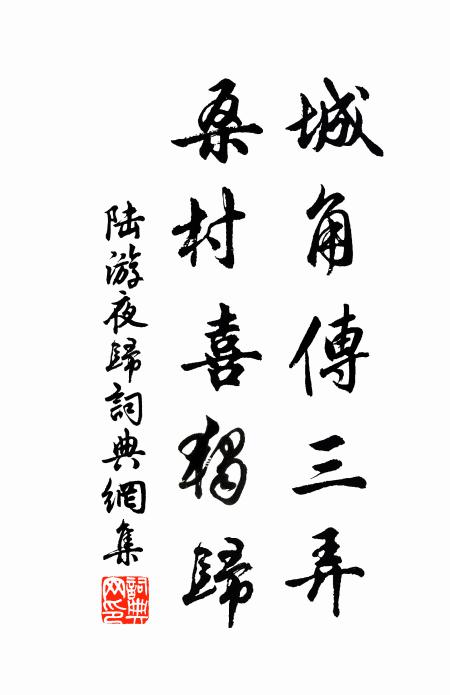 城角傳三弄
桑村喜獨歸
陸游夜歸詞典網集
詞典網印